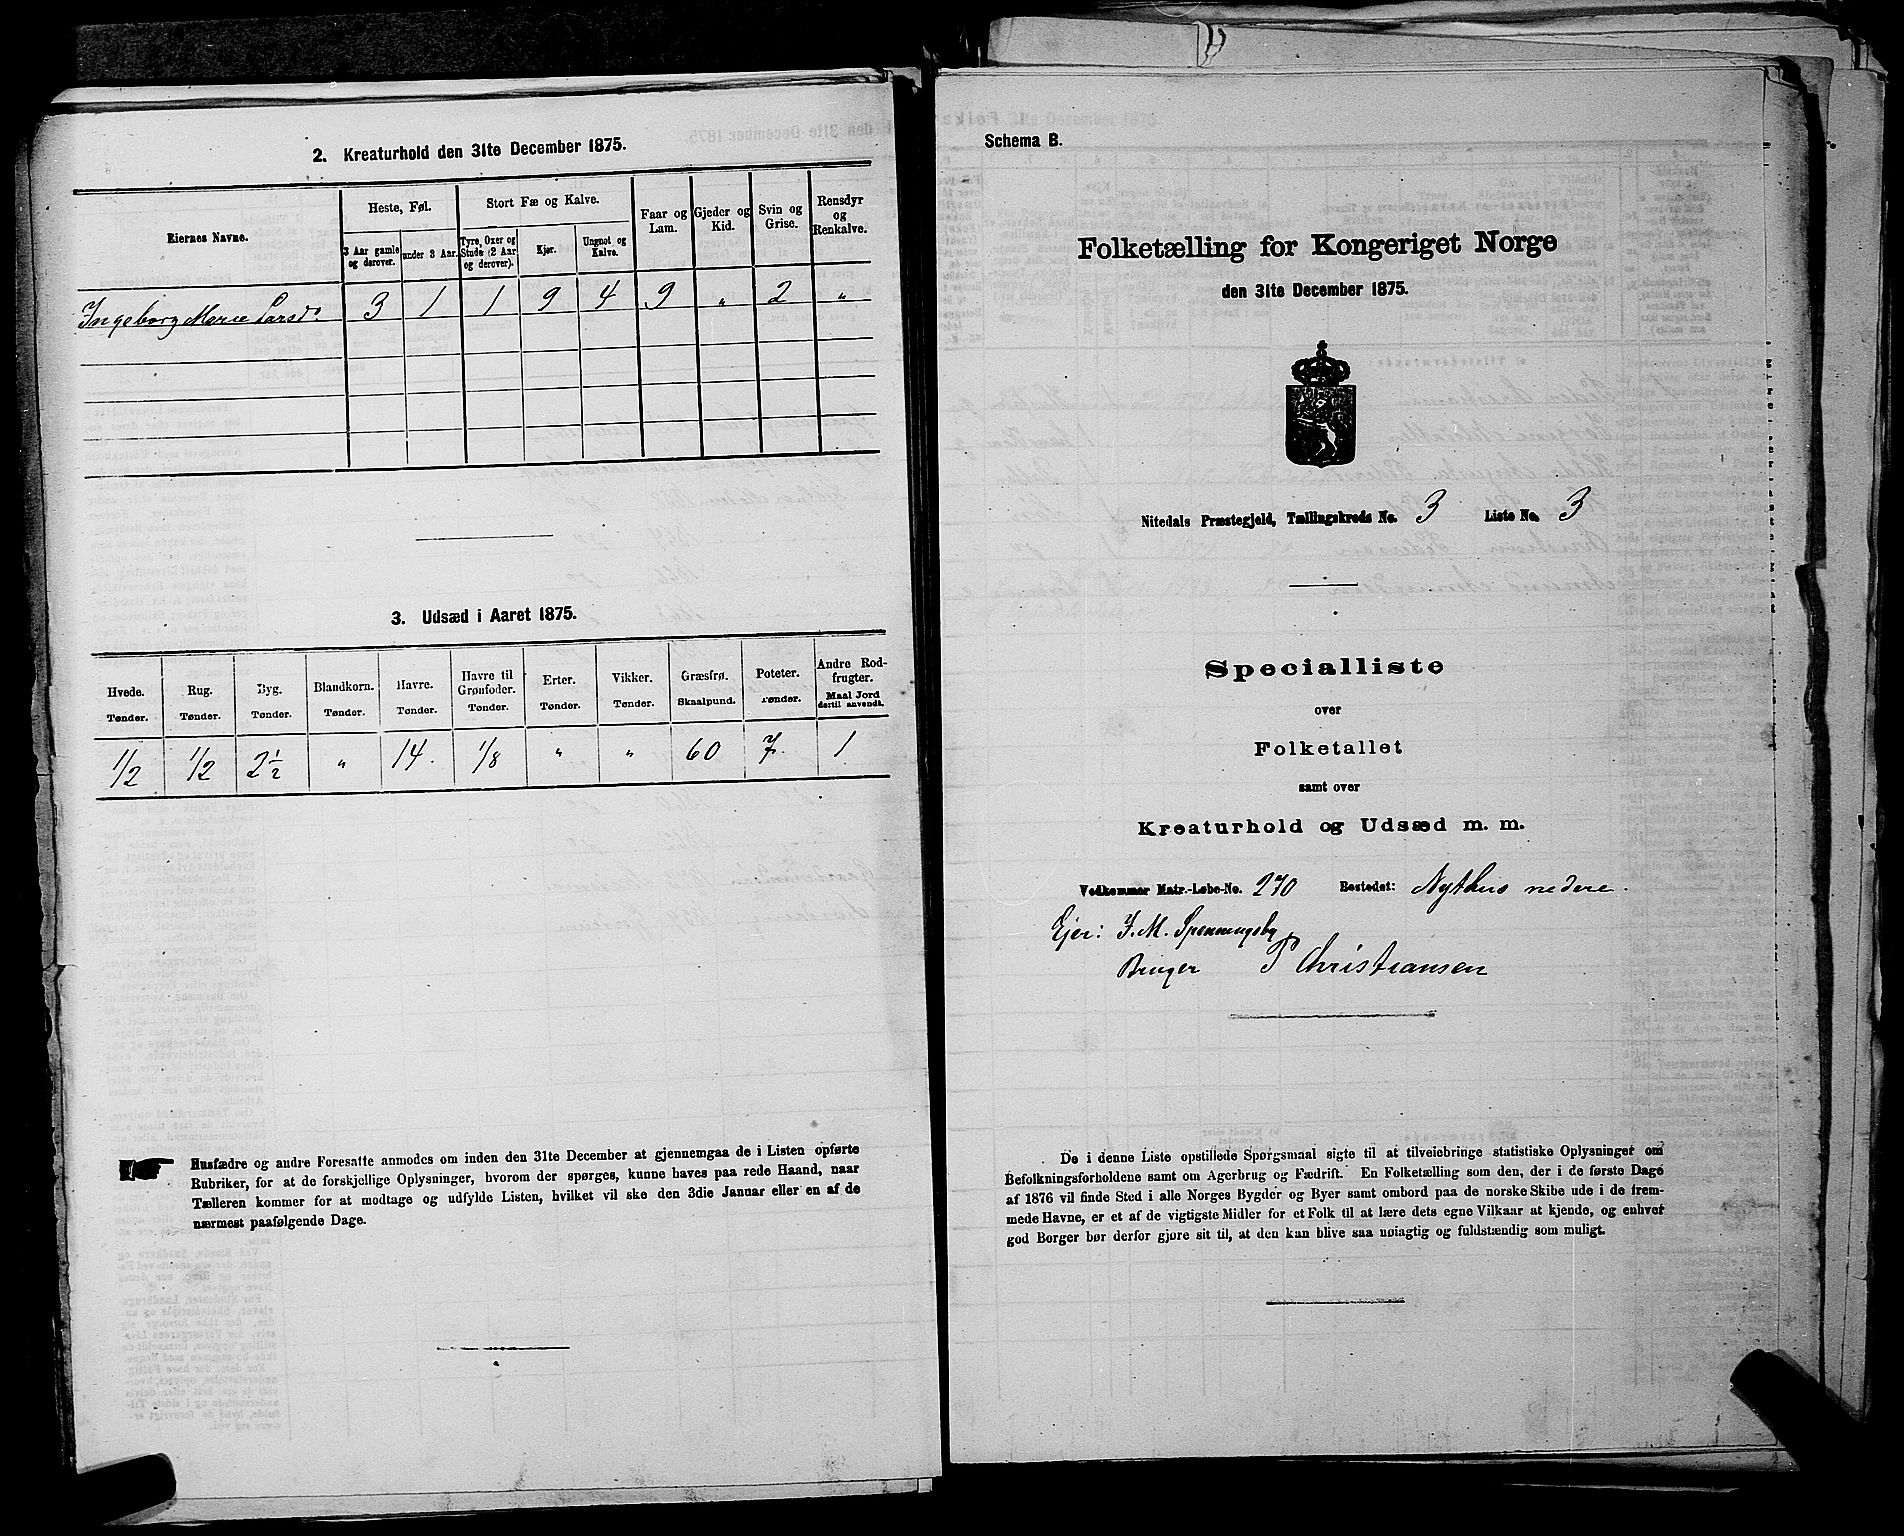 2. Kreaturhold den 31te December 1875.
Eiernes Navne.
Heste, Føl.
Stort Fæ og Kalve.
Faar og Lam.
Gjeder og Kid.
Svin og Grise.
Rensdyr og Renkalve.
3 Aar gamle og derover.
under 3 Aar.
Tyre, Oxer og Stude (2 Aar og derover).
Kjør.
Ungnøt og Kalve.
Ingeborg Marie Larsd. 3 1 1 9 4 9 " 2 "
3. Udsæd i Aaret 1875.
Hvede. Tønder.
Rug. Tønder.
Byg. Tønder.
Blandkorn. Tønder.
Havre. Tønder.
Havre til Grønfoder. Tønder.
Erter. Tønder.
Vikker. Tønder.
Græsfrø. Skaalpund.
Poteter. Tønder.
Andre Rodfrugter. Maal Jord dertil anvendt.
1/2 1/2 2 1/2 " 14. 1/8 " " 60 7. 1
Husfædre og andre Foresatte anmodes om inden den 31te December at gjennemgaa de i Listen opførte
Rubriker, for at de forskjellige Oplysninger, hvorom der spørges, kunne haves paa rede Haand, naar
Tælleren kommer for at modtage og udfylde Listen, hvilket vil ske den 3die Januar eller en af de
nærmest paafølgende Dage.
Schema B.
Folketælling for Kongeriget Norge
den 31te December 1875.
Nitedals Præstegjeld, Tællingskreds No. 3 Liste No. 3
Specialliste
over
Folketallet
samt over
Kreaturhold og Udsæd m. m.
Vedkommer Matr.-Løbe-No. 270 Bostedet: Nythus nedre.
Ejer: I. M. Spenningsby
Bruger P Christiansen
De i denne Liste opstillede Spørgsmaal sigte til at tilveiebringe statistiske Oplysninger om
Befolkningsforholdene samt om Agerbrug og Fædrift. En Folketælling som den, der i de første Dage
af 1876 vil finde Sted i alle Norges Bygder og Byer samt ombord paa de norske Skibe ude i de frem-
mede Havne, er et af de vigtigste Midler for et Folk til at lære dets egne Vilkaar at kjende, og enhver
god Borger bør derfor gjøre sit til, at den kan blive saa nøiagtig og fuldstændig som muligt.